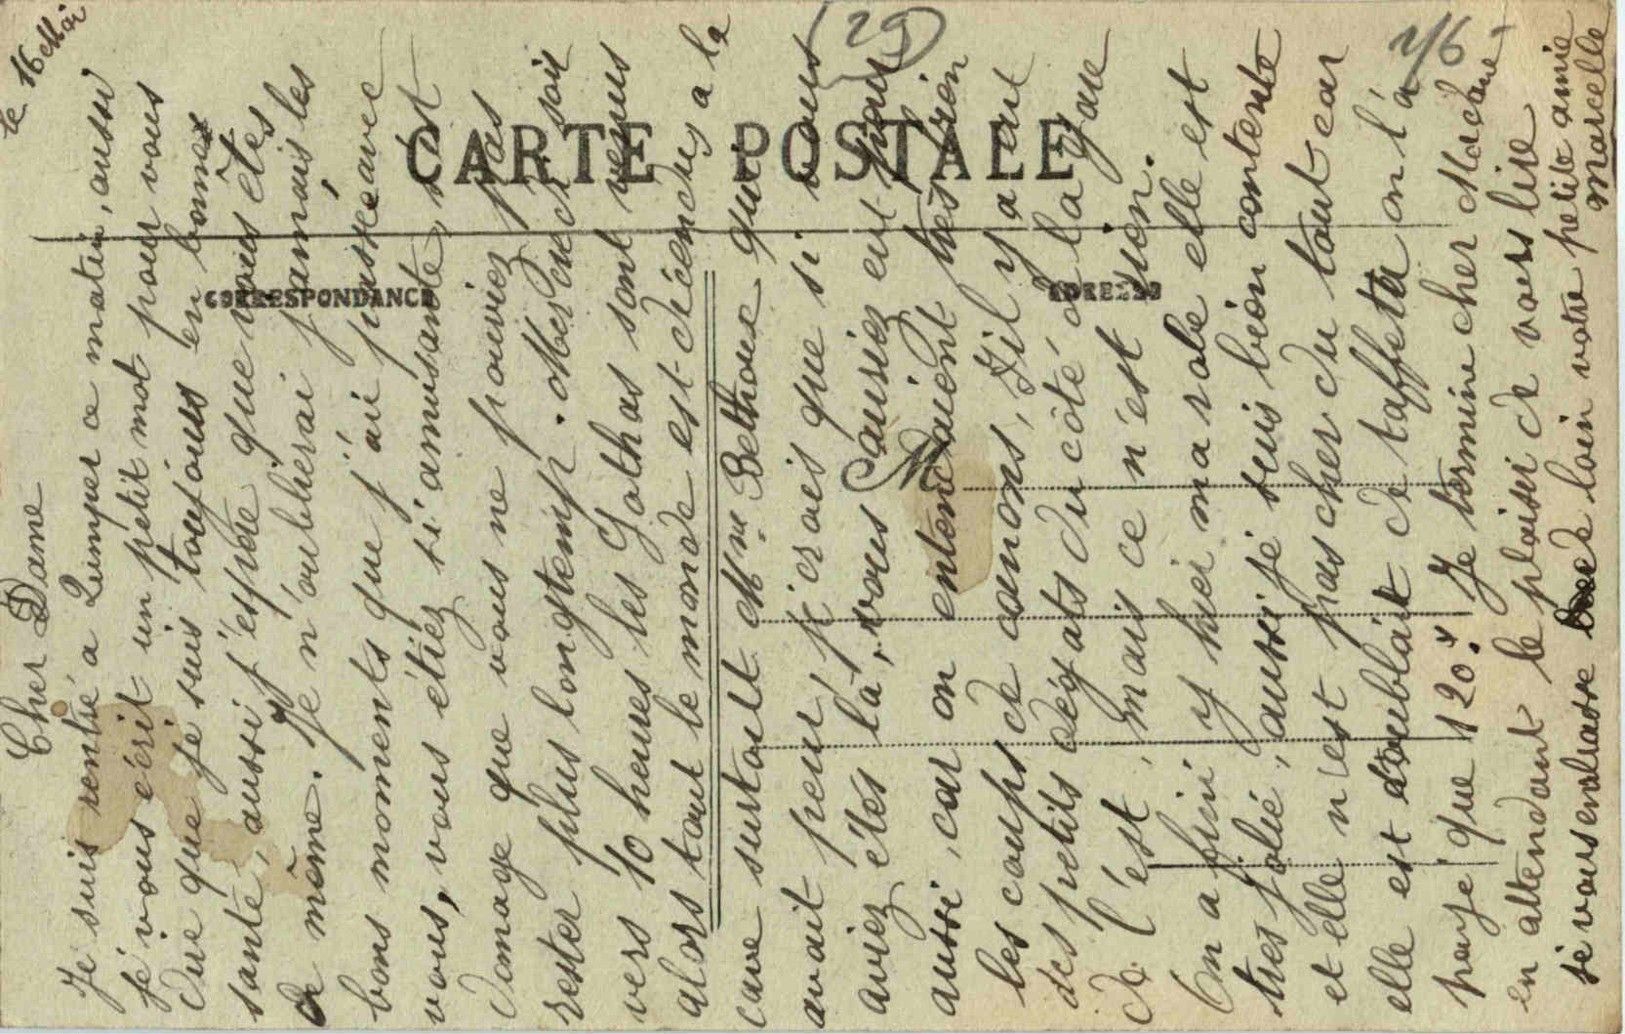 le 16 Mai
29
2/6
CARTE POSTALE
CORRESPONDANCE
ADRESSE
M
Cher Dame
Je suis rentré a Quimper ce matin, aussi
je vous écrit un petit mot pour vous
dire que je suis toujours en bonnes
santé, aussi j'espère que vous êtes
de même. Je n'oublierai jamais les
bons moments que j'ai passée avec
vous, vous étiez si amusante, s'est
domage que vous ne pouviez pas
rester plus longtemp. Mercredi soir
vers 10 heures les Gothas sont venus
alors tout le monde est décendus a la
cave surtout Mme Bethoux qui
avait peur, j'crois que si vous
aviez étés là, vous auriez eut peur
aussi, car on entendaient très bien
les coups de canons, Il y a eut
des petits dégats du côté de la gare
de l'est, mais ce n'est rien.
On a fini y hier ma robe elle est
tres jolie, aussi je suis bien contente
et elle n'est pas cher du tout car
elle est doublait de taffeta on l'a
payé que 120.F Je termine cher Madame
en attendant le plaisir de vous lire
je vous embrasse de loin votre petite amie
Marcelle